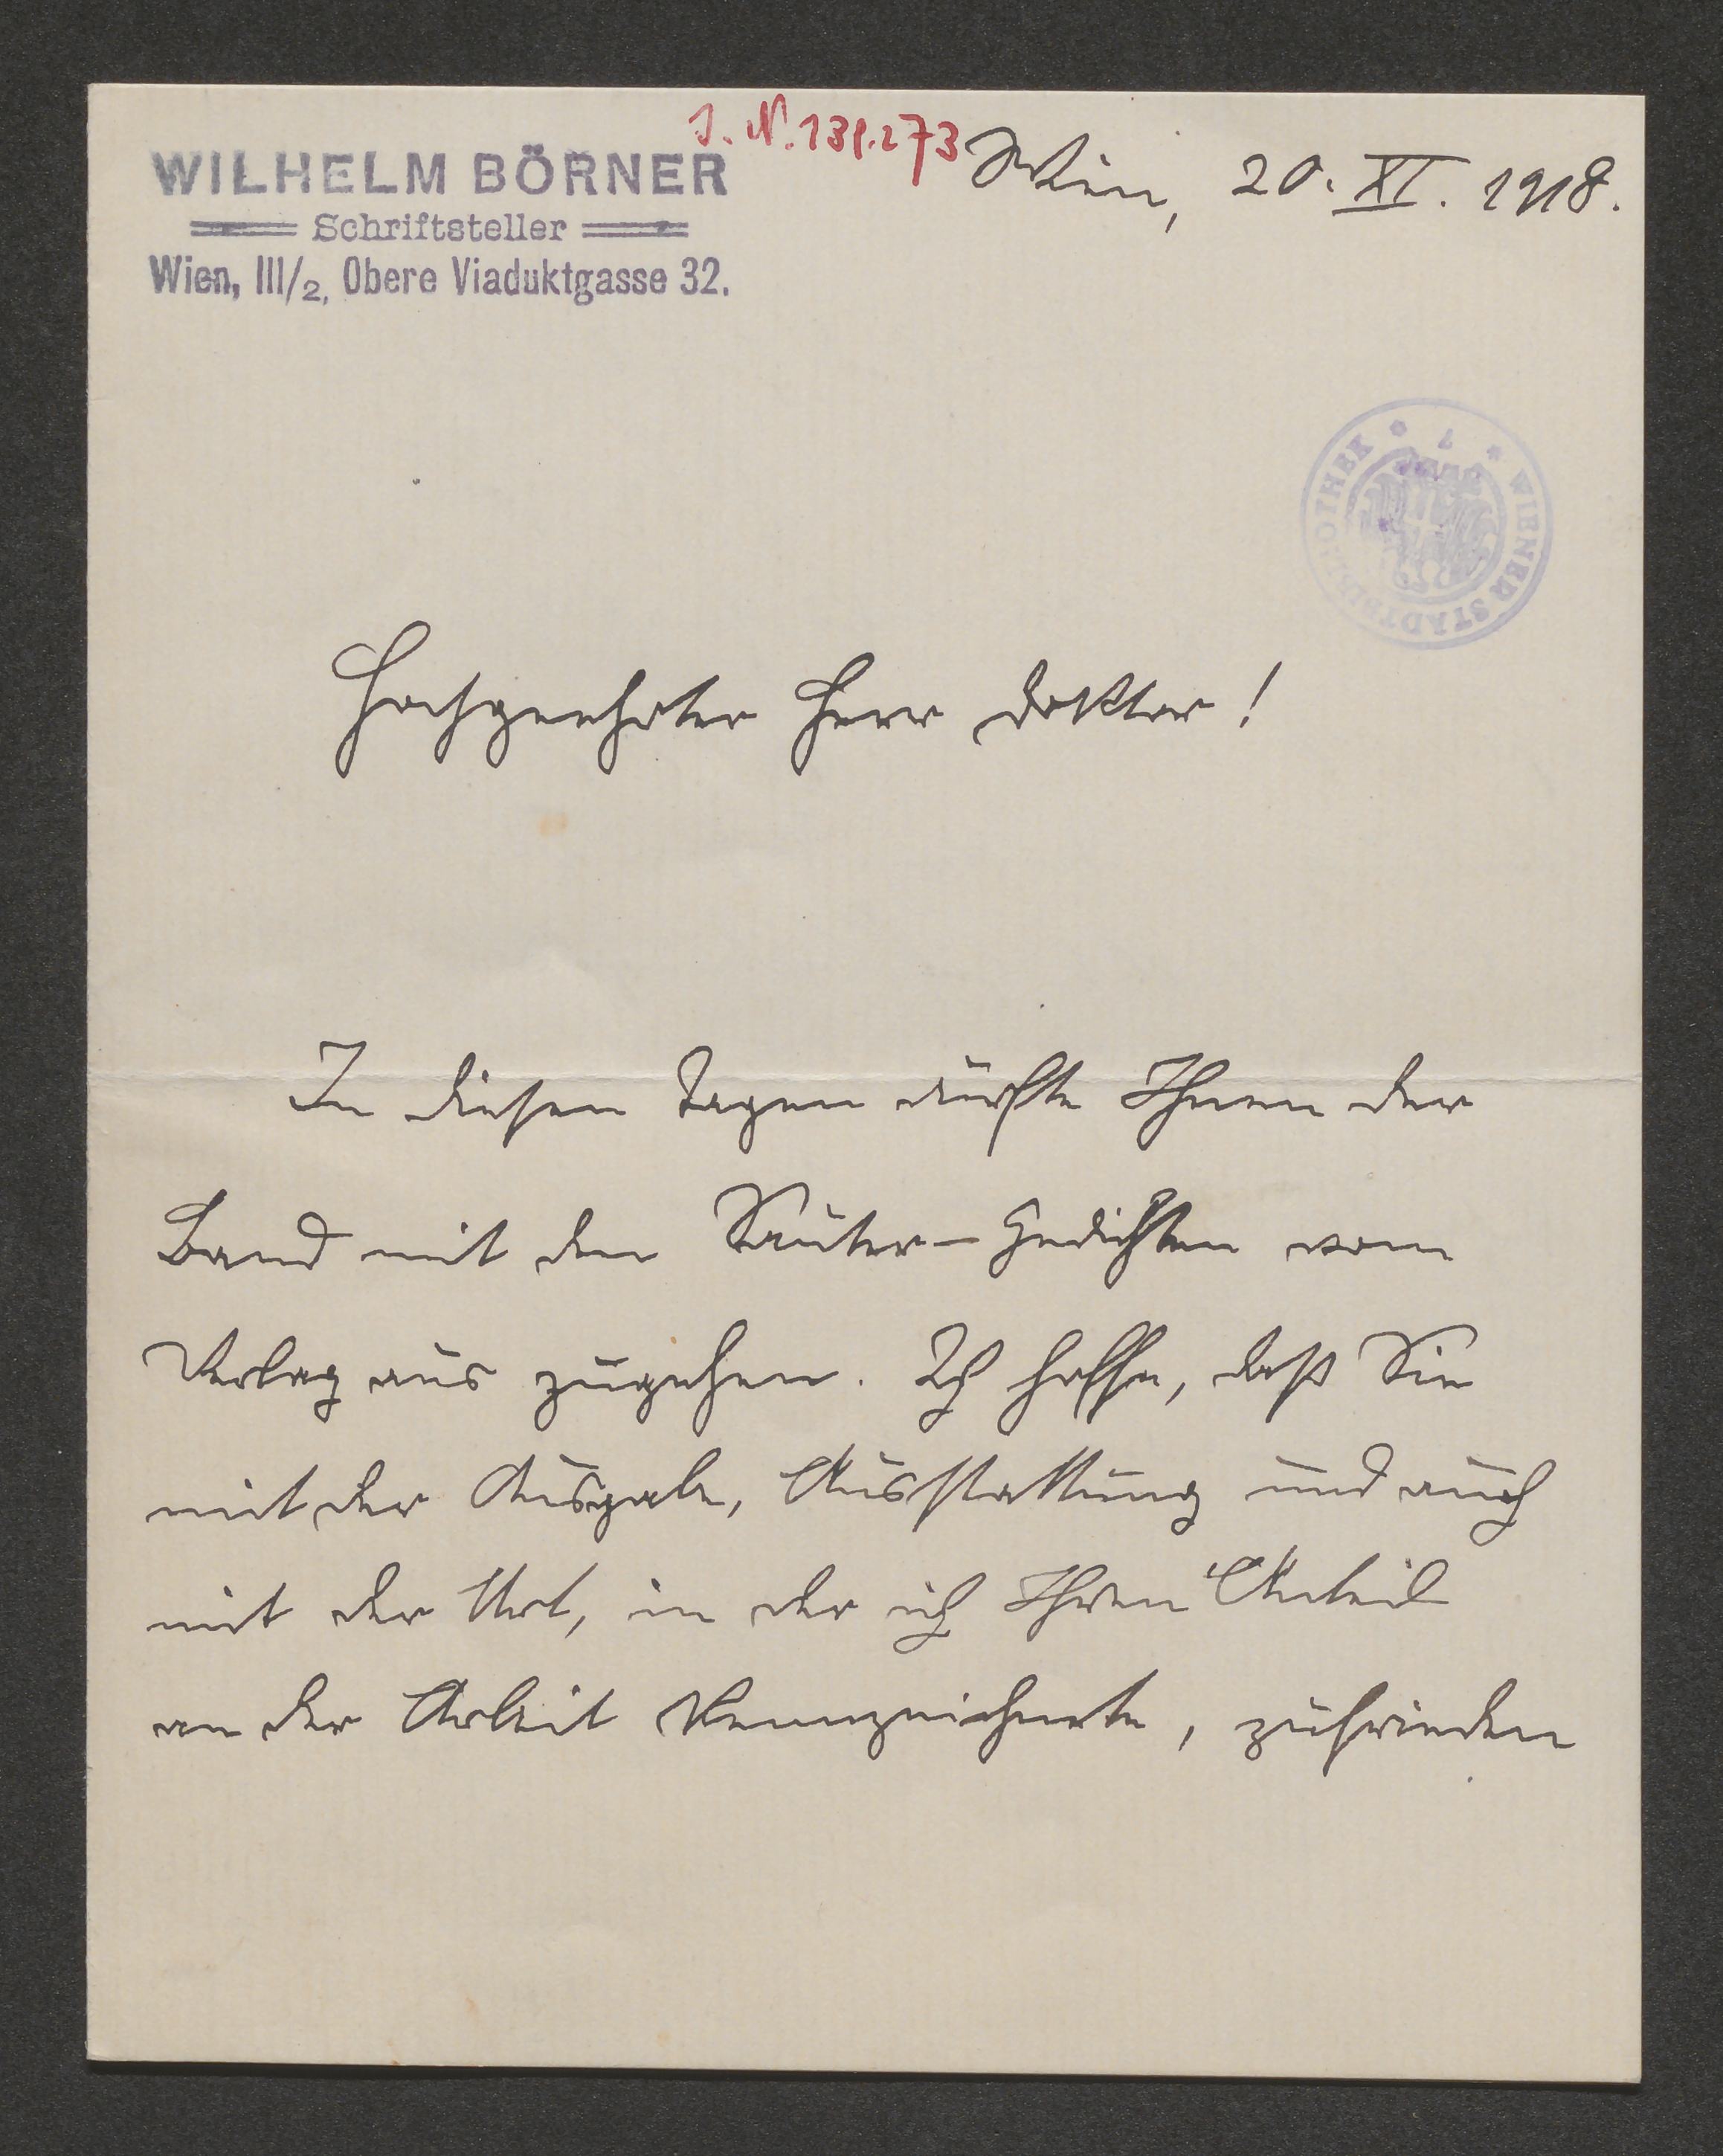 J. N. 139.273
WILHELM BÖRNER
Schriftsteller
Wien, III/2, Obere Viaduktgasse 32.
Wien, 20. XI. 1918.
WIENER STADTBIBLIOTHEK
Hochgeehrter Herr Doktor!
In diesen Tagen dürfte Ihnen der
Band mit den Sauter-Gedichten vom
Verlag aus zugehen. Ich hoffe, daß Sie
mit der Ausgabe, Ausstattung und auch
mit der Art, in der ich Ihren Anteil
an der Arbeit kennzeichnete, zufrieden